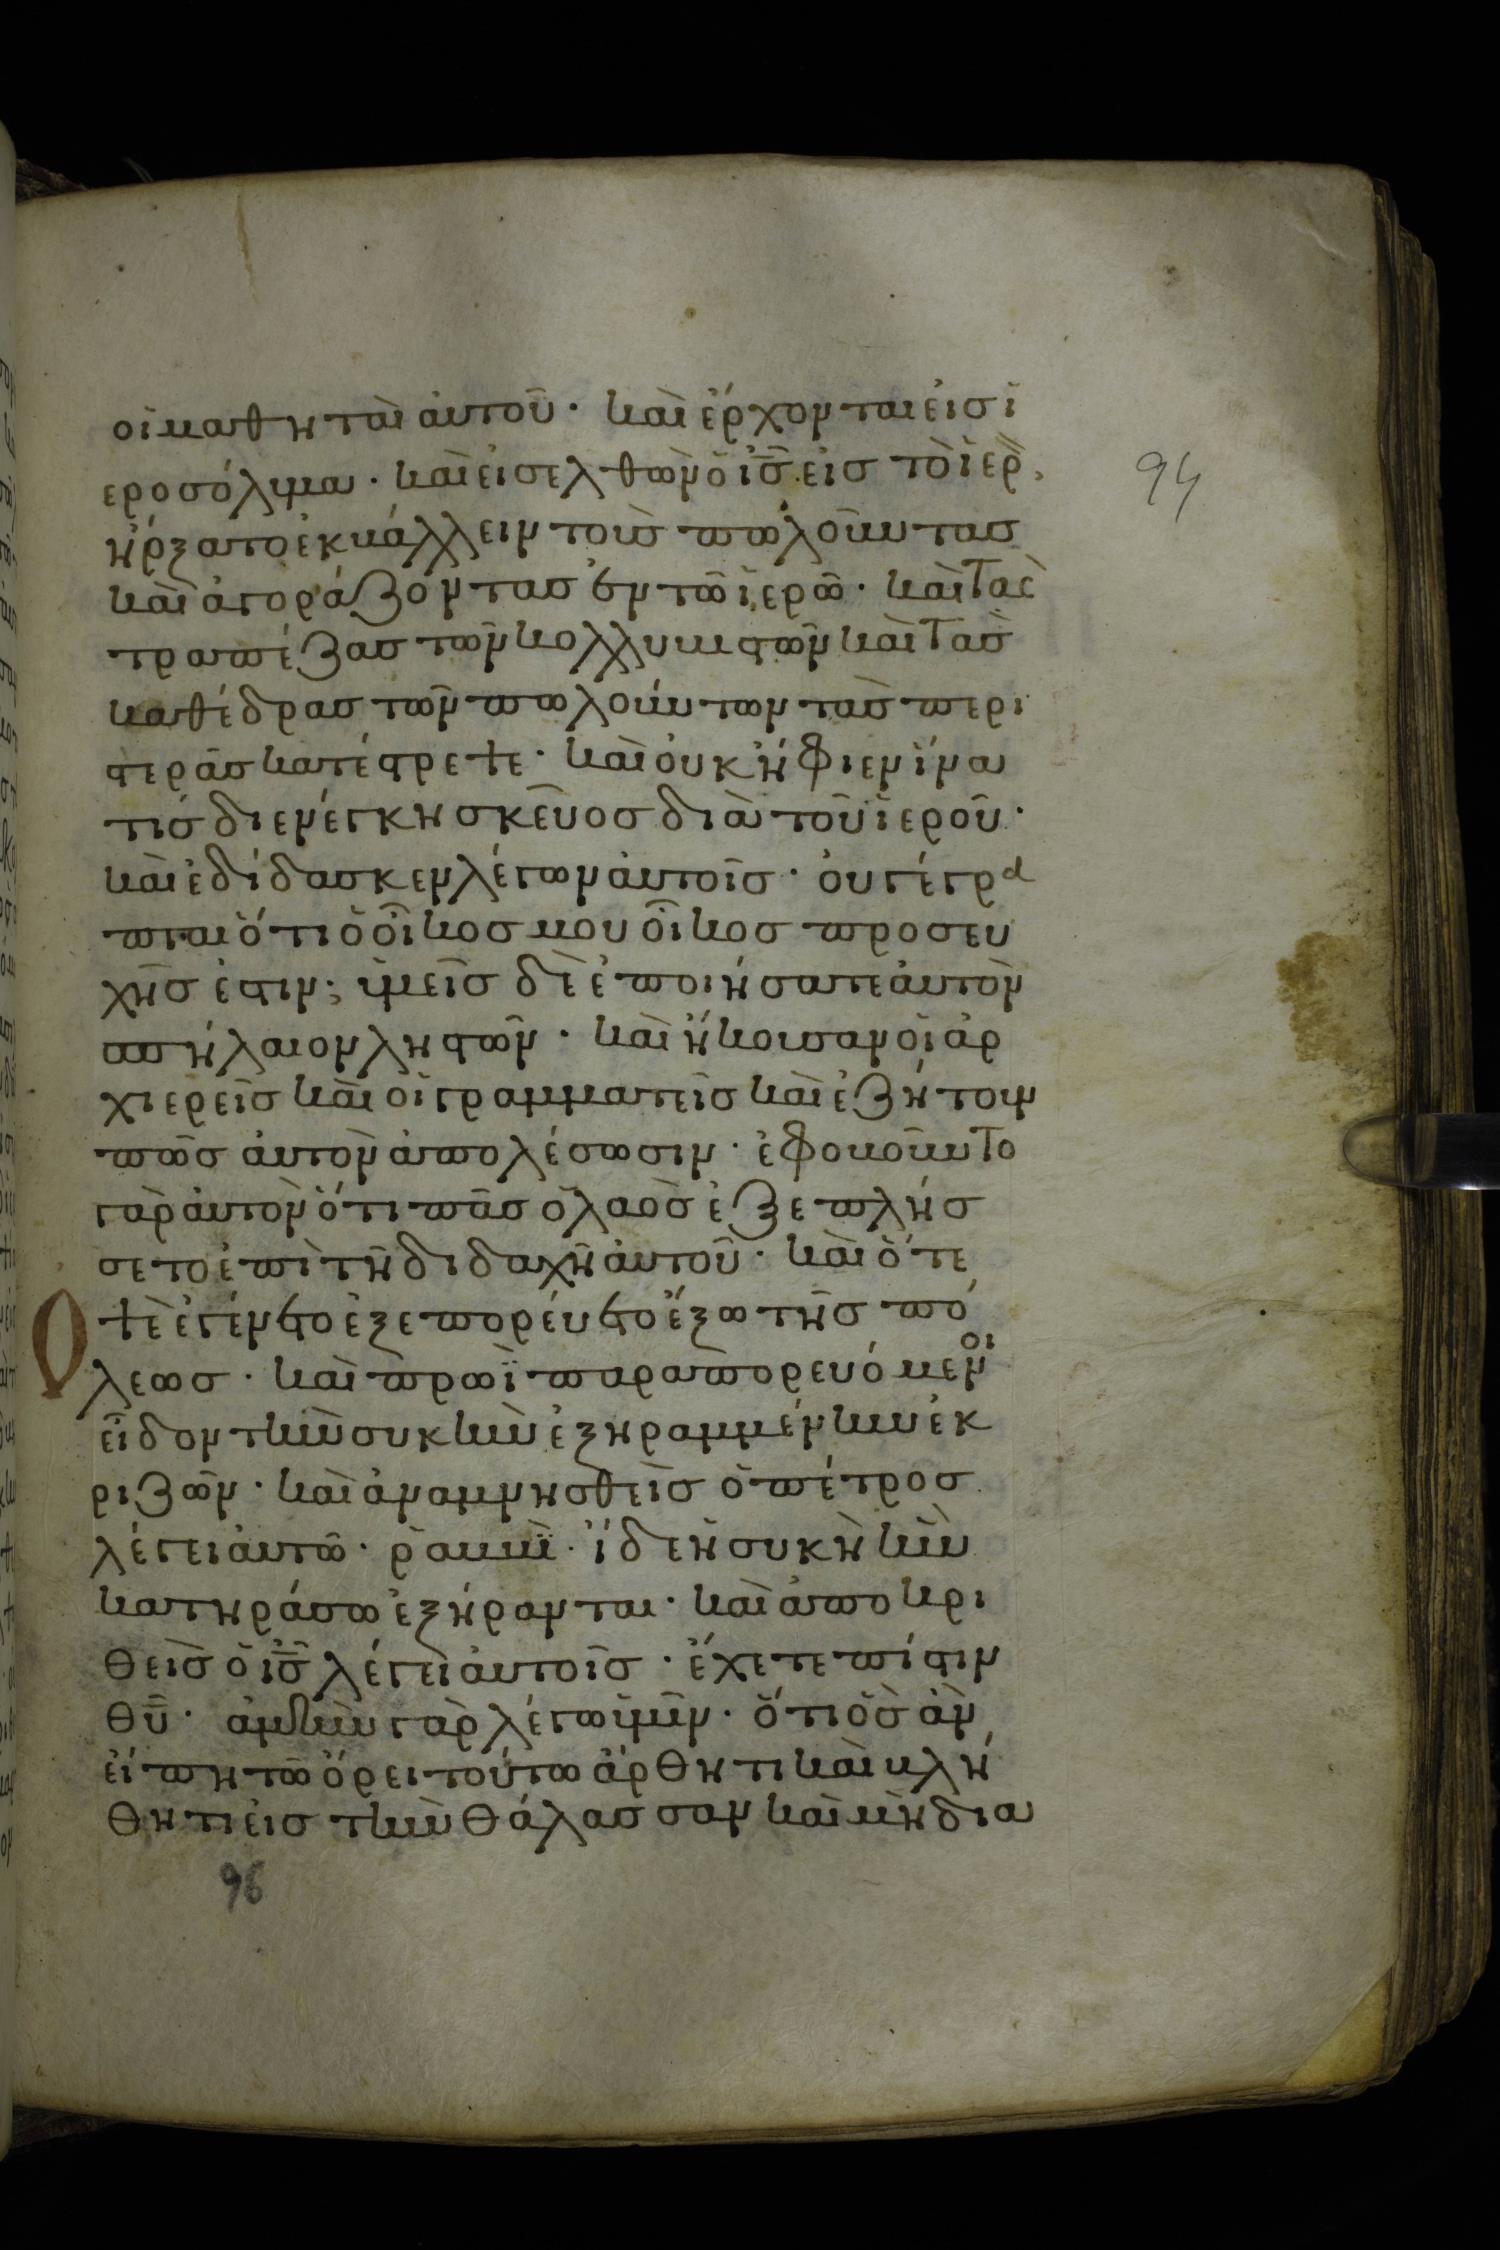 οἱ μαθηταὶ ἀυτοῦ · καὶ ἔρχονται εἰσ ἱ
εροσόλυμα · καὶ εἰσελθὼν ὁ ις̅ εἰσ τὸ ἱερ
94
ἤρξατο ἐκβάλλειν τοὺσ πωλοῦντασ
καὶ ἀγοράζοντασ ἐν τῶ ἱερῶ · καὶ τὰσ
τραπέζασ τῶν κολλυβιστῶν καὶ τὰσ
καθέδρασ τῶν πωλούντων τὰσ περι
στερὰσ κατέστρεψε · καὶ ὀυκ ἤφιεν ἵνα
τίσ διενέγκη σκεῦοσ διὰ τοῦ ἱεροῦ ·
καὶ ἐδίδασκεν λέγων ἀυτοῖσ · ὀυ γέγρα
πται ὅτι ὁ ὀῖκοσ μου ὀῖκοσ προσευ
χῆσ ἐστιν; ὑμεῖσ δὲ ἐποιήσατε ἀυτὸν
σπήλαιον ληστῶν · καὶ ἤκουσαν ὁι ἀρ
χιερεῖσ καὶ ὁι γραμματεῖσ καὶ ἐζήτουν
πῶσ ἀυτὸν ἀπολέσωσιν · ἐφοβοῦντο
γὰρ ἀυτὸν ὅτι πᾶσ ὁ λαὸσ ἐξεπλήσ
σετο ἐπὶ τῆ διδαχῆ ἀυτοῦ · καὶ ὅτε
Οψὲ ἐγένετο ἐξεπορέυετο ἔξω τῆσ πό
λεωσ · καὶ πρωῒ παραπορευόμενοι
εἶδον τὴν συκὴν ἐξηραμμένην ἐκ
ριζῶν · καὶ ἀναμνησθεὶσ ὁ πέτροσ
λέγει ἀυτῶ · ῥαββῒ · ἴδε ἡ συκὴ ἣν
κατηράσω ἐξήρανται · καὶ ἀποκρι
θεὶσ ὁ ις̅ λέγει ἀυτοῖσ · ἔχετε πίστιν
θυ̅ · ἀμὴν γὰρ λέγω ὑμῖν · ὅτι ὃσ ἂν
εἴπη τῶ ὄρει τούτω ἄρθητι καὶ βλή
θητι εἰσ τὴν θάλασσαν καὶ μὴ δια
96